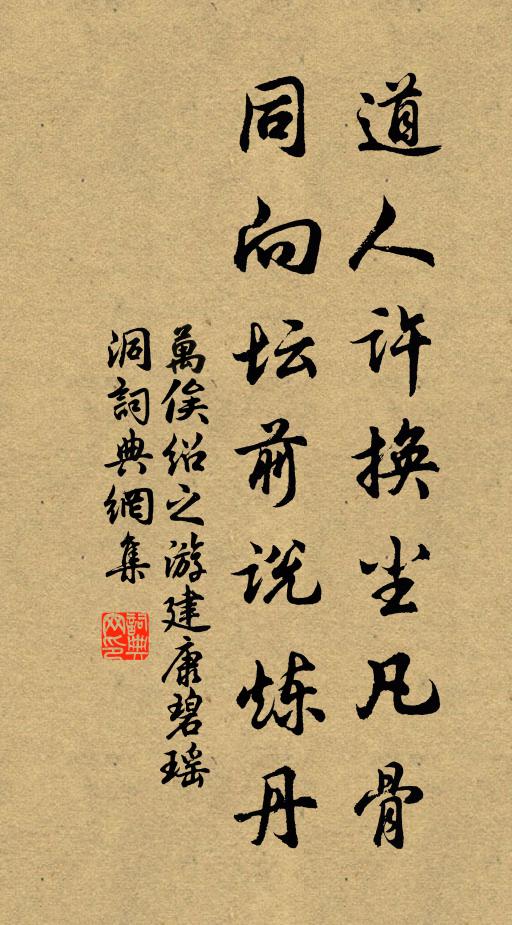 道人许换尘凡骨
同向坛前说炼丹
萬俟绍之游建康碧瑶
洞詞典網集
詞典網印